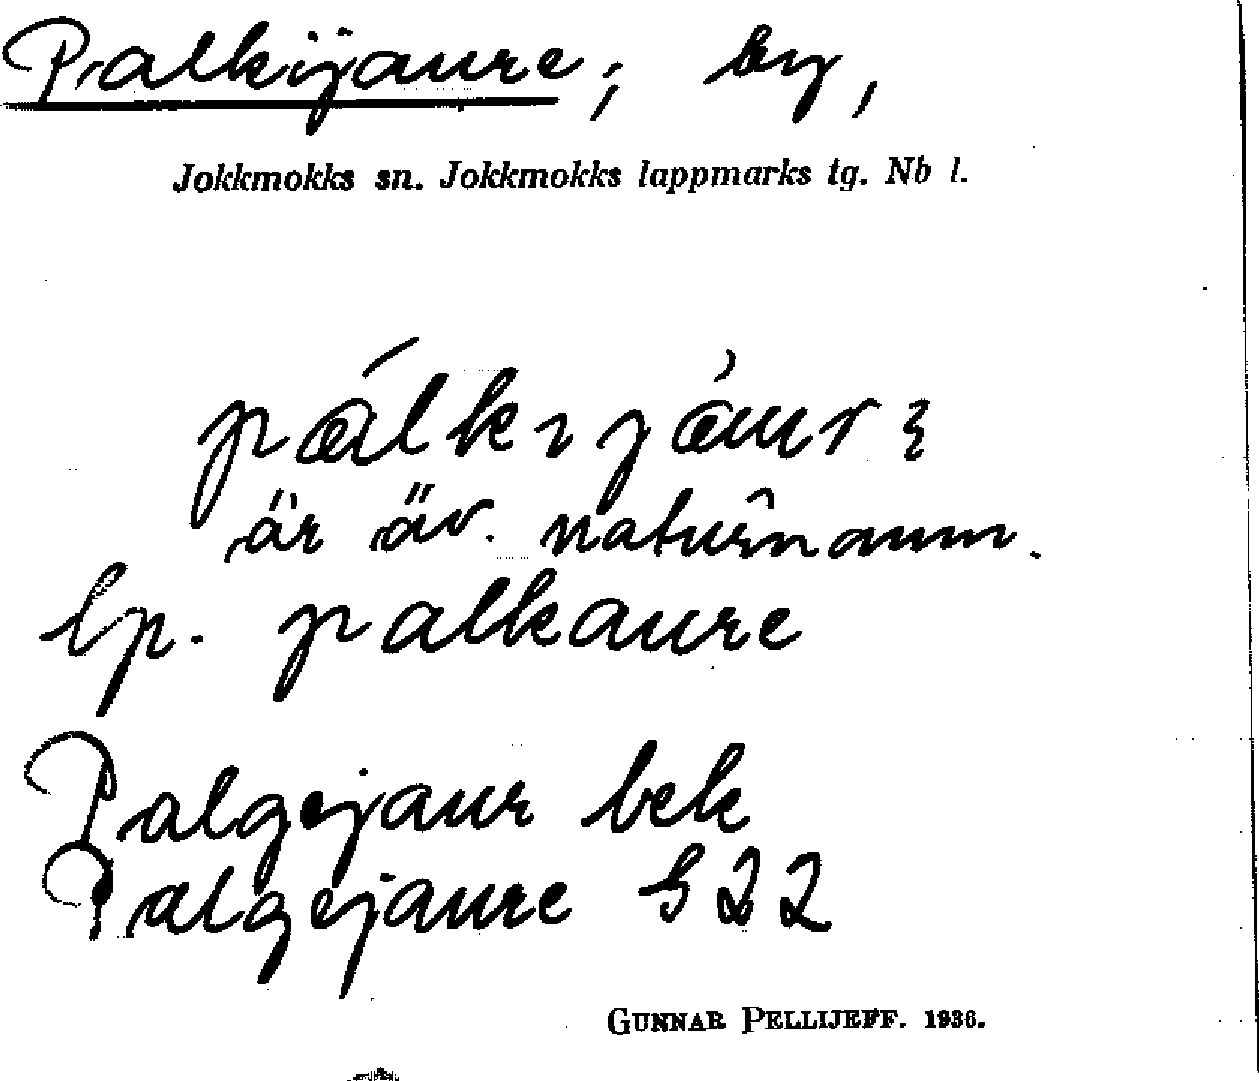 Palkijaure, by,
Jokkmokks sn. Jokkmokks lappmarks tg. Nb l.
pálkıjàurɛ
är äv. naturnamn.
lp. palkaure
Palgejaur bek
Palgejaure G22
GUNNAR PELLIJEFF. 1936.